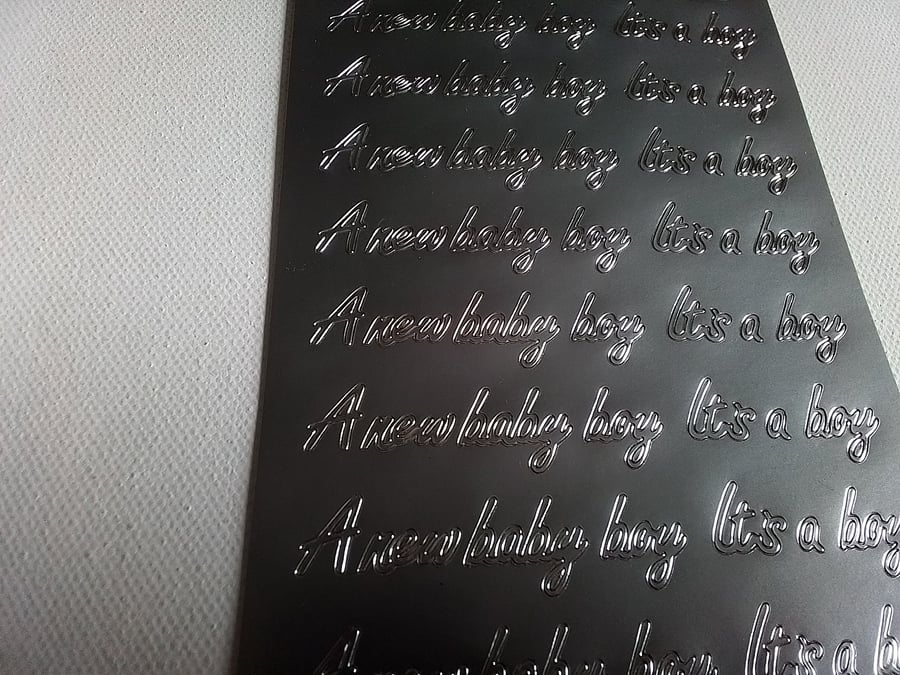 A new baby boy It's a boy
A new baby boy It's a boy
A new baby boy It's a boy
A new baby boy It's a boy
A new baby boy It's a boy
A new baby boy It's a boy
A new baby boy It's a boy
A new baby boy It's a b